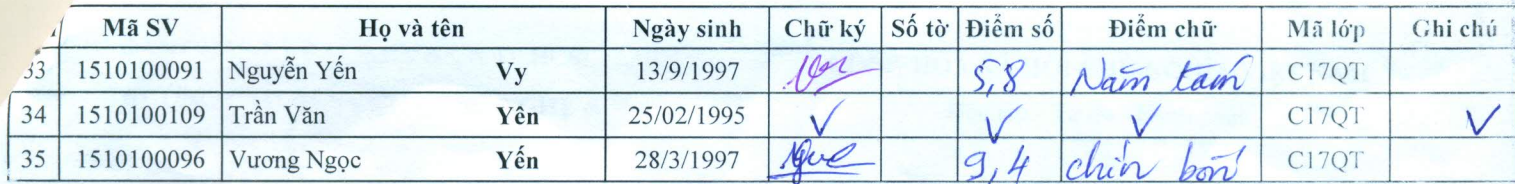 Mã SV Họ và tên Ngày sinh Chữ ký Số tờ Điểm số Điểm chữ Mã lớp Ghi chú
33 1510100091 Nguyễn Yến Vy 13/9/1997 5,8 Năm tám C17QT
34 1510100109 Trần Văn Yên 25/02/1995 C17QT
35 1510100096 Vương Ngọc Yến 28/3/1997 9,4 chín bốn C17QT